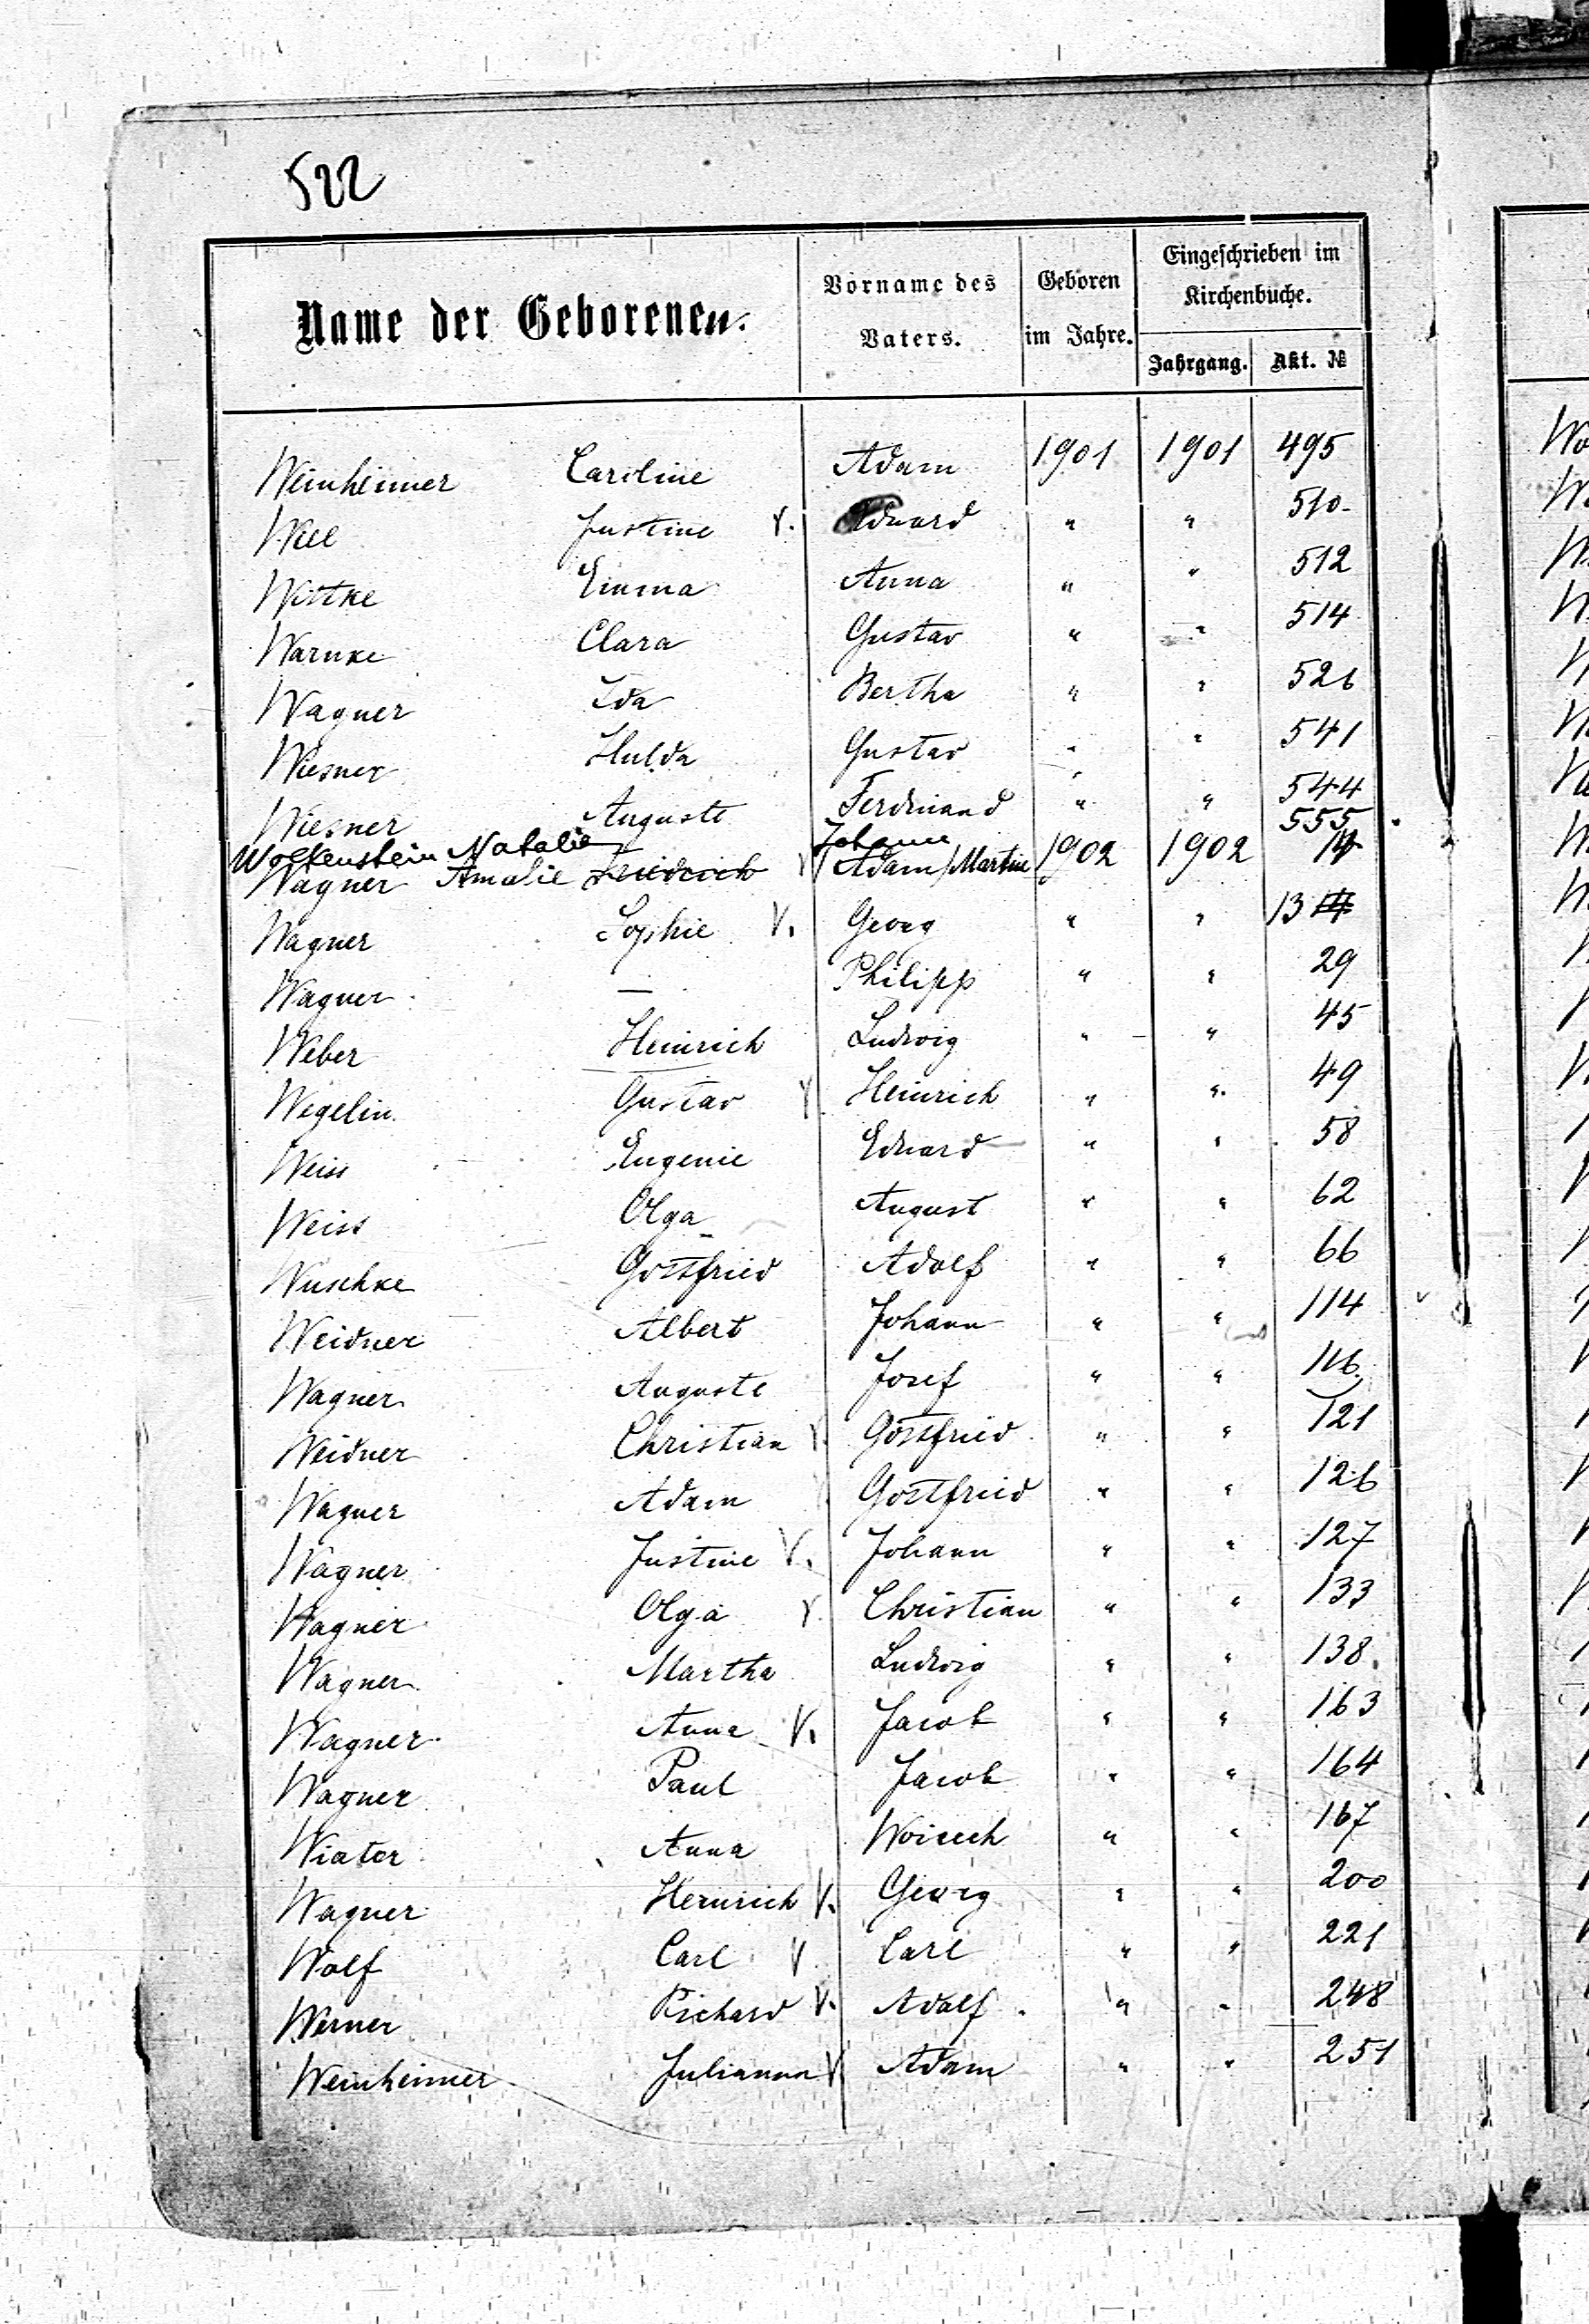 522
Name der Geborenen. Vorname des Vaters. Geboren im Jahre. Eingeschrieben im Kirchenbuche. Jahrgang. Akt. №
Weinheimer Caroline Adam 1901 1901 495
Will Justine V. Eduard " " 510
Wittke Emma Anna " " 512
Warnke Clara Gustav " " 514
Wagner Ida Bertha " " 526
Wiesner Hulda Gustav " " 541
Wiesner Auguste Ferdinand " " 544
Wolkenstein Natalie Johann 555
Wagner Amalie Friedrich V Adam / Martin 1902 1902 14
Wagner Sophie V. Georg " " 13 14
Wagner — Philipp " " 29
Weber Heinrich Ludwig " " 45
Wegelin Gustav V Heinrich " " 49
Weiss Eugenie Eduard " " 58
Weiss Olga August " " 62
Wuschke Gottfried Adolf " " 66
Weidner Albert Johann " " 114
Wagner Auguste Josef " " 116
Weidner Christian V. Gottfried " " 121
Wagner Adam Gottfried " " 126
Wagner Justine V. Johann " " 127
Wagner Olga V. Christian " " 133
Wagner Martha Ludwig " " 138
Wagner Anna V. Jacob " " 163
Wagner Paul Jacob " " 164
Wiator Anna Woicech " " 167
Wagner Heinrich V. Georg " " 200
Wolf Carl V Carl " " 221
Werner Richard V. Adolf " " 248
Weinheimer Julianna V Adam " " 251